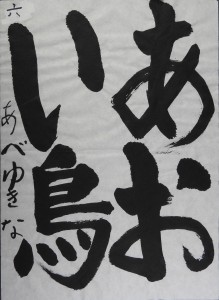 あお
い鳥
六 あべゆきな